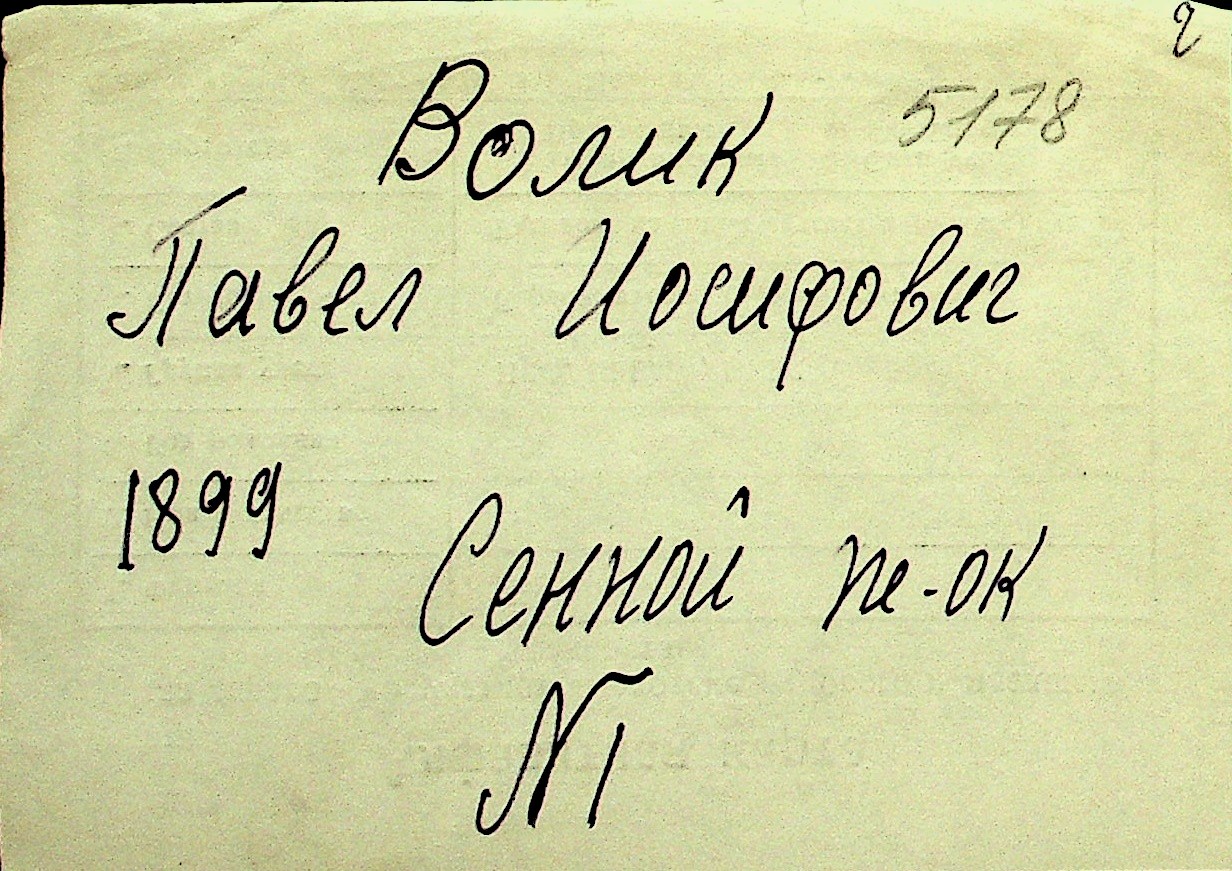 2
5178
Волик
Павел Иосифович
1899
Сенной пе-ок
N1